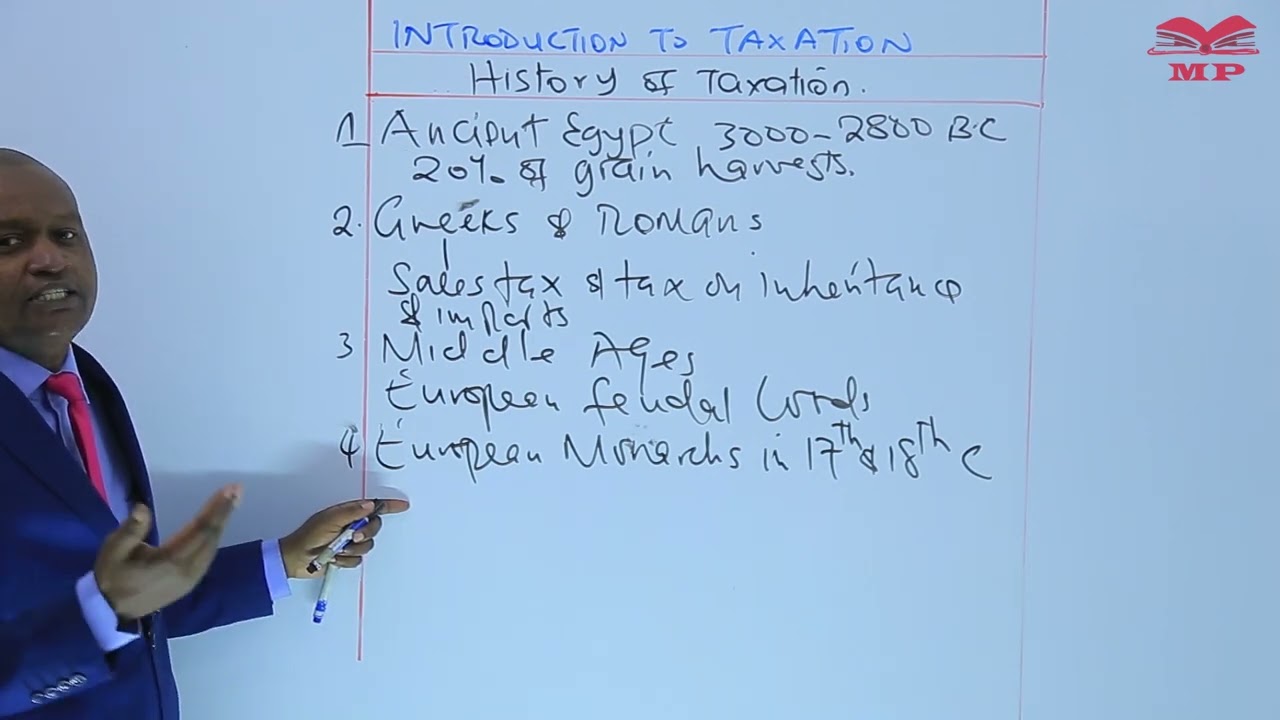 INTRODUCTION TO TAXATION
MP
History of Taxation.
1 Ancient Egypt 3000-2800 B.C
20% of grain harvests.
2. Greeks & Romans
Sales tax & tax on inheritance
& imports
3 Middle Ages
European feudal Lords
4 European Monarchs in 17th & 18th C